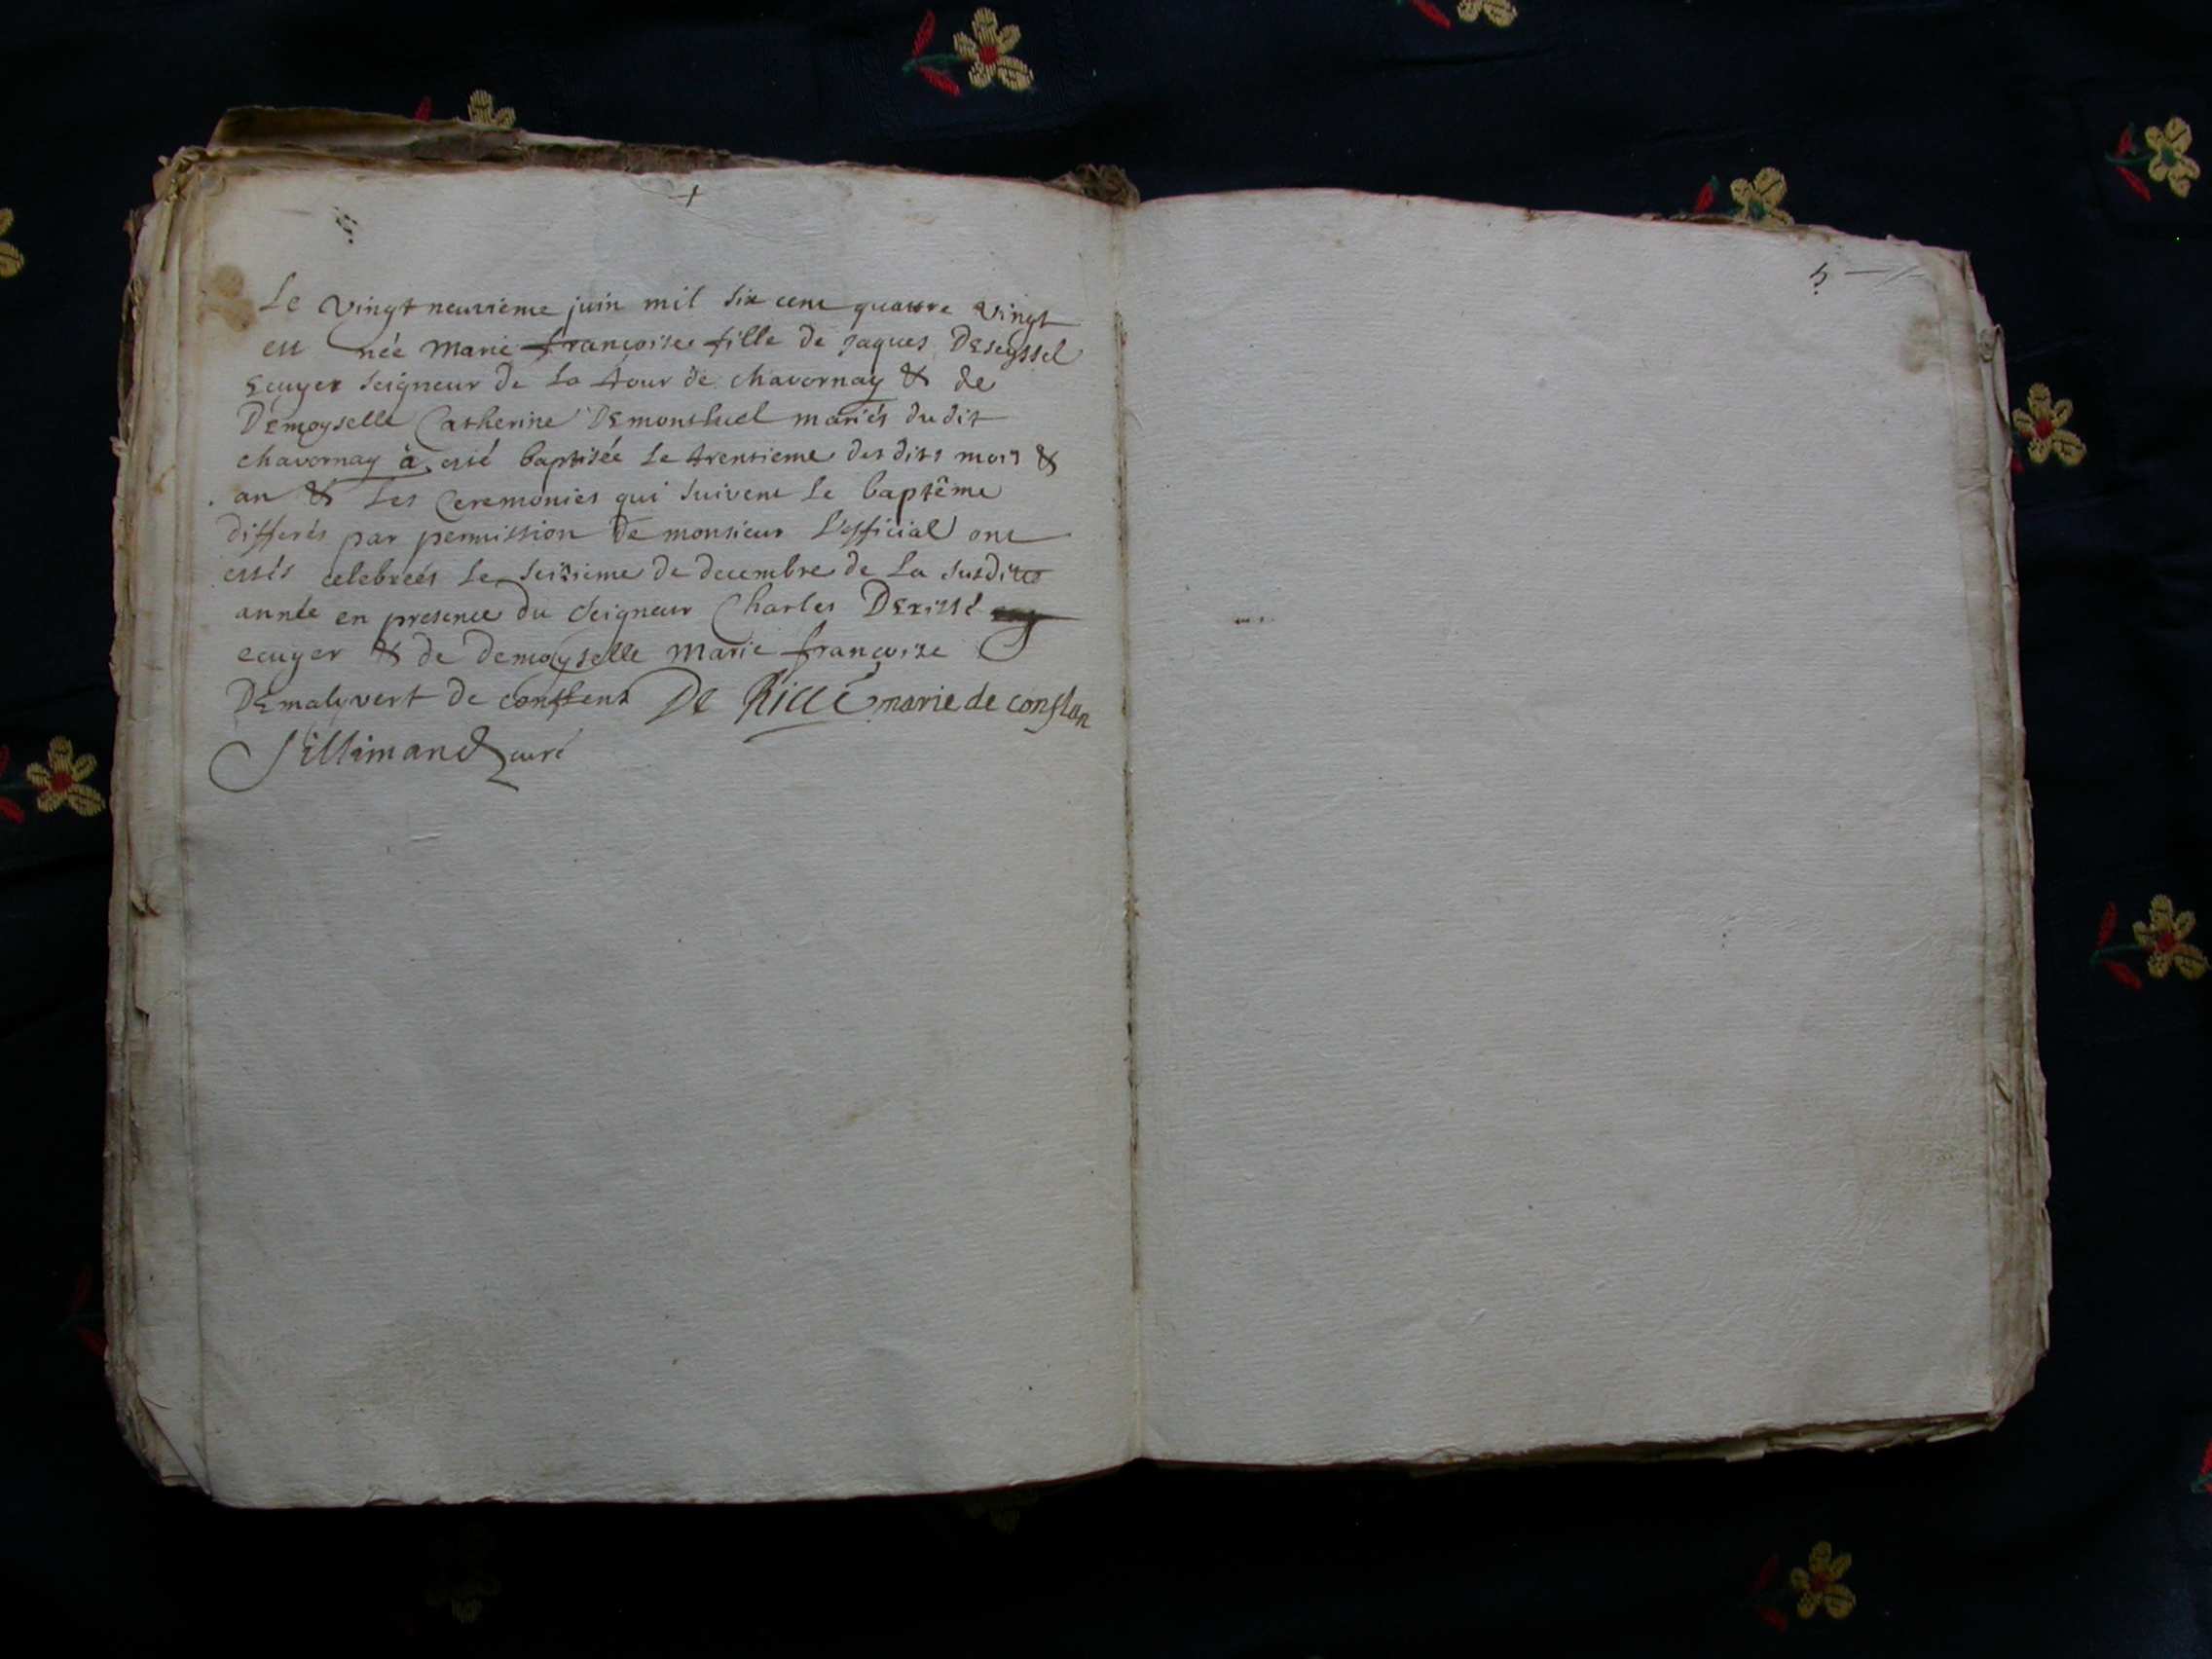 +
Le vingt neuvieme juin mil six cent quattre vingt
est née marie françoise fille de jaques Deseyssel
Ecuyer seigneur de la tour de chavornay & de
Demoyselle Catherine Demontluel mariés du dit
chavornay à esté baptisée le trentieme des dits mois &
an & les Ceremonies qui suivent le baptême
differés par permission de monsieur L'official ont
estés celebreés le seizieme de decembre de la susditte
année en presence du seigneur Charles Derissé
ecuyer & de demoyselle marie françoise
Demalyvert de conflens De Riccé marie de conflan
curé
5